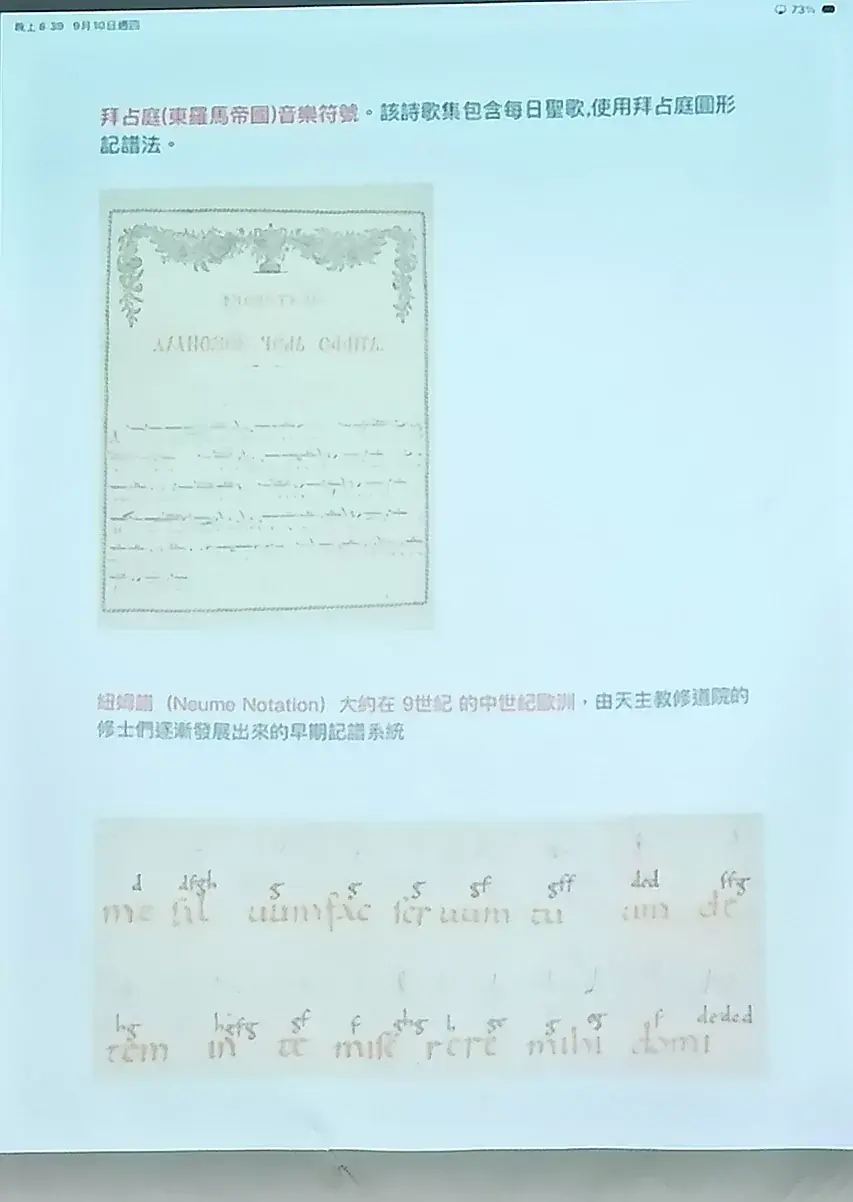 晚上6:39 9月10日週四
73%
拜占庭(東羅馬帝國)音樂符號。該詩歌集包含每日聖歌,使用拜占庭圓形
記譜法。
紐姆譜（Neume Notation）大約在 9世紀 的中世紀歐洲，由天主教修道院的
修士們逐漸發展出來的早期記譜系統
d dfgh g g g gf gff ded ffg
me fil uumfac ser uum tu um de
hg hgfg gf f ghg h ge g eg f deded
tem in te mise rere mihi domi